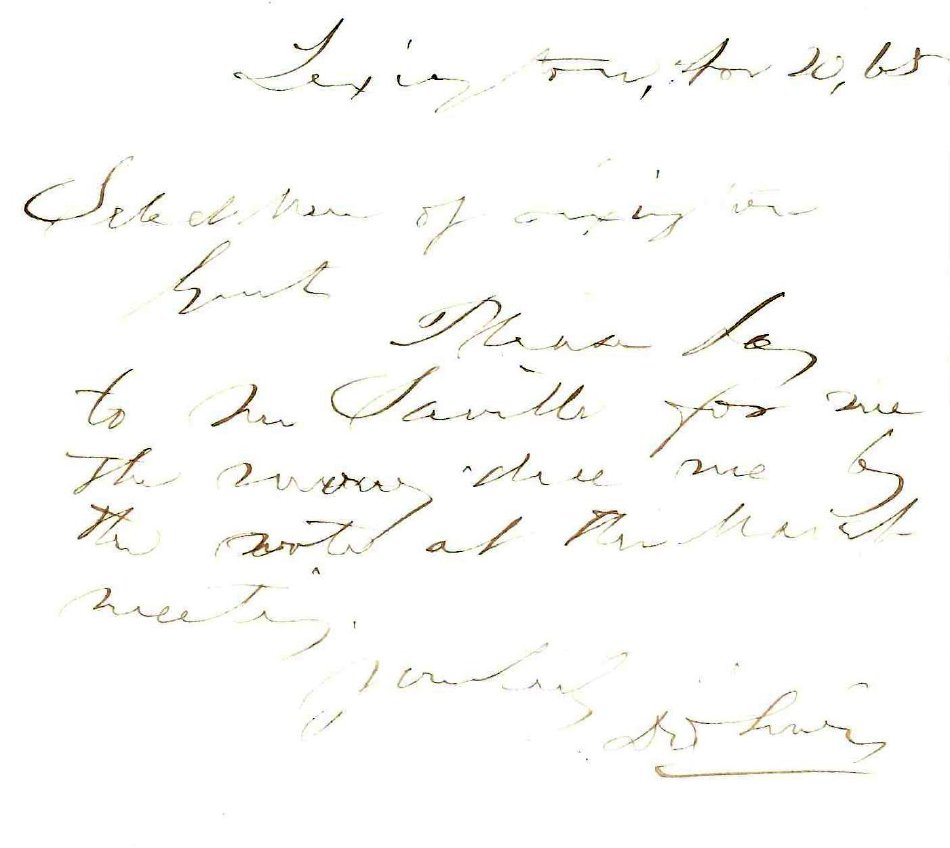 Lexington, Nov 20, 65
Selectmen of Lexington
Gent
Please pay
to Mr Saville for me
the money due me by
the vote at the March
meeting.
Yours truly
Dio Lewis